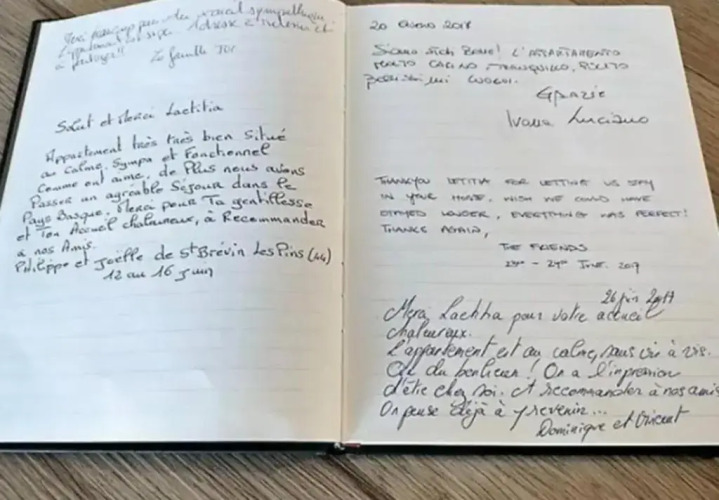 Merci beaucoup pour votre accueil sympathique
L'appartement est super. Adresse à retenir et
à partager!!
La famille
Salut et Merci Laetitia
Appartement très très bien situé
au calme, Sympa et Fonctionnel
comme ont aime, de Plus nous avions
Passer un agréable Séjour dans le
Pays Basque, Merci pour Ta gentillesse
et Ton Accueil chaleureux, à Recommander
a nos Amis.
Philippe et Joëlle de St Brévin Les Pins (44)
12 au 16 juin
20 2017
SIAMO STATI BENE! L'APPARTAMENTO
MOLTO CARINO TRANQUILLO,
LUOGHI.
GRAZIE
Ivana Luciano
THANKYOU LETITIA FOR LETTING US STAY
IN YOUR HOUSE, WISH WE COULD HAVE
STAYED LONGER, EVERYTHING WAS PERFECT!
THANKS AGAIN,
THE FRIENDS
23rd - 24th JUNE. 2017
26 juin 2017
Merci Laetitia pour votre accueil
chaleureux.
L'appartement est au calme, sans vis à vis.
Que du bonheur! On a l'impression
d'être chez soi. A recommander à nos amis
On pense déjà à y revenir...
Dominique et Vincent